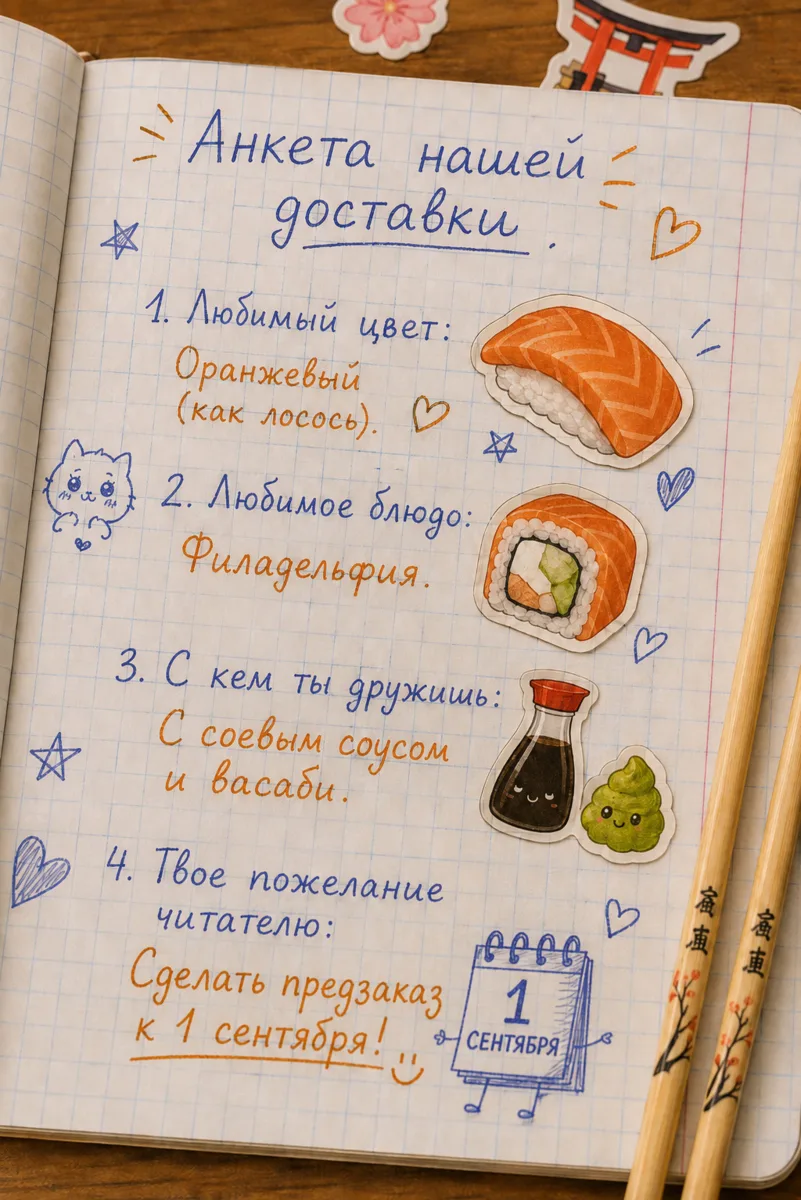 Анкета нашей
доставки.
1. Любимый цвет:
Оранжевый
(как лосось).
2. Любимое блюдо:
Филадельфия.
3. С кем ты дружишь:
С соевым соусом
и васаби.
4. Твое пожелание
читателю:
Сделать предзаказ
к 1 сентября!
1
СЕНТЯБРЯ